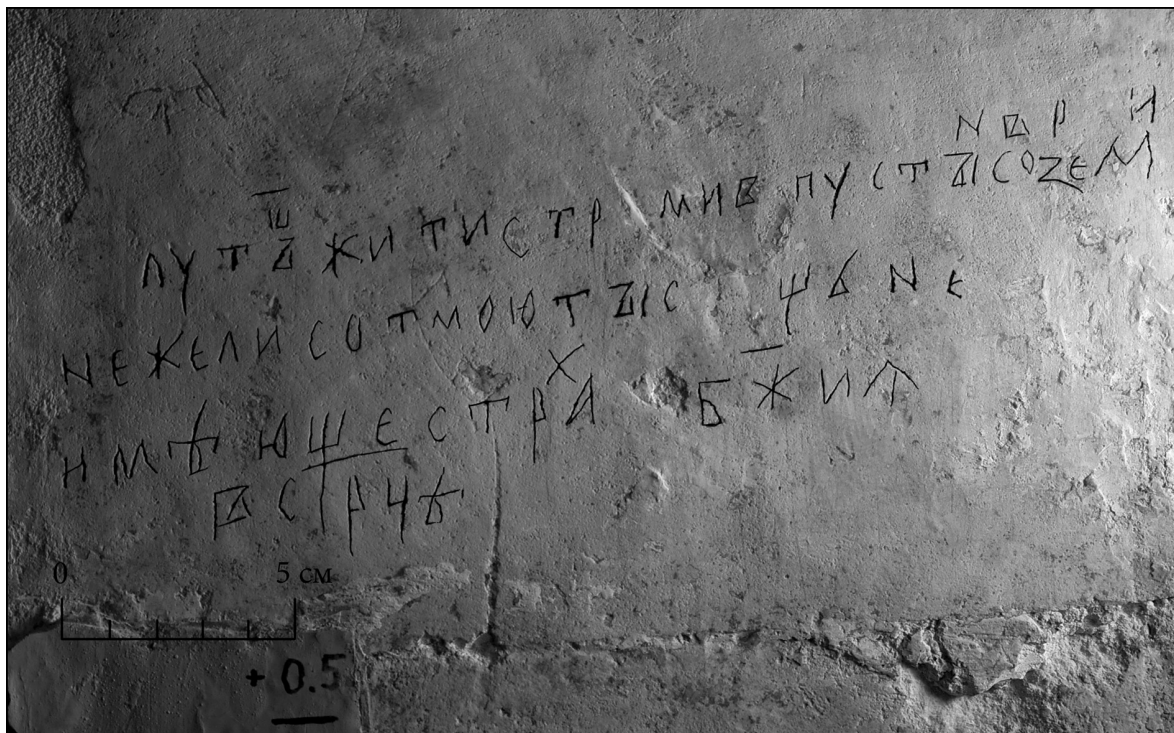 N В Р И
ЛУТЪШ ЖИТИСТР МИВ ПУСТЪІСОZЕМ
NЕЖЕЛИСОТМОЮТЪІС ЩЬ NЕ
ИМѢЮЩЕСТРАХ Б҃ЖИѦ
В СРЦѢ
0 5 см
+ 0.5